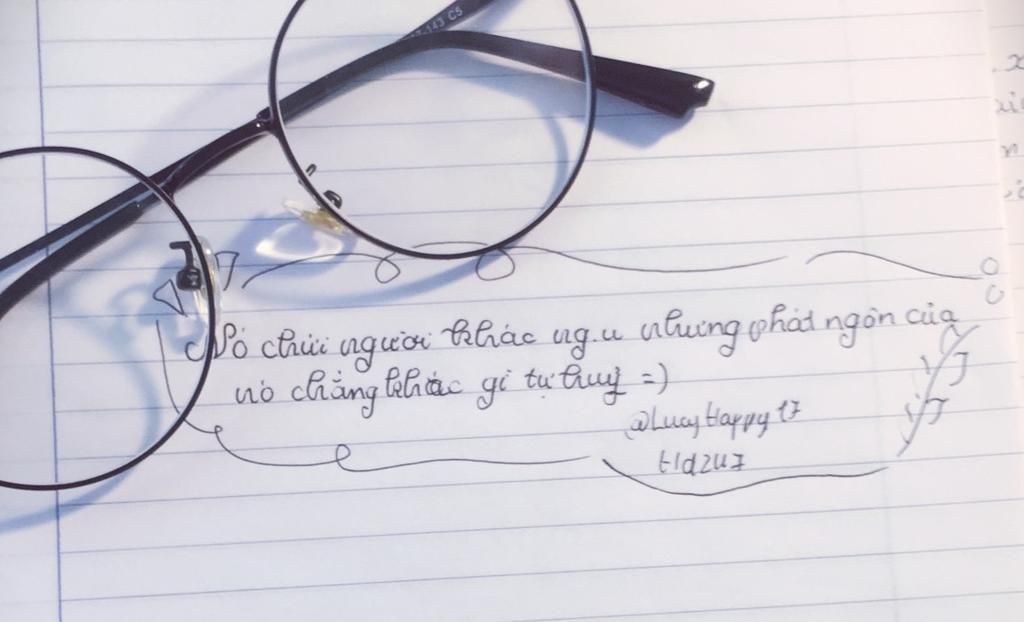 7-143 C5
Nó chửi người khác ng.u nhưng phát ngôn của
nó chẳng khác gì tự huỷ =)
@LucyHappy17
tld2u7